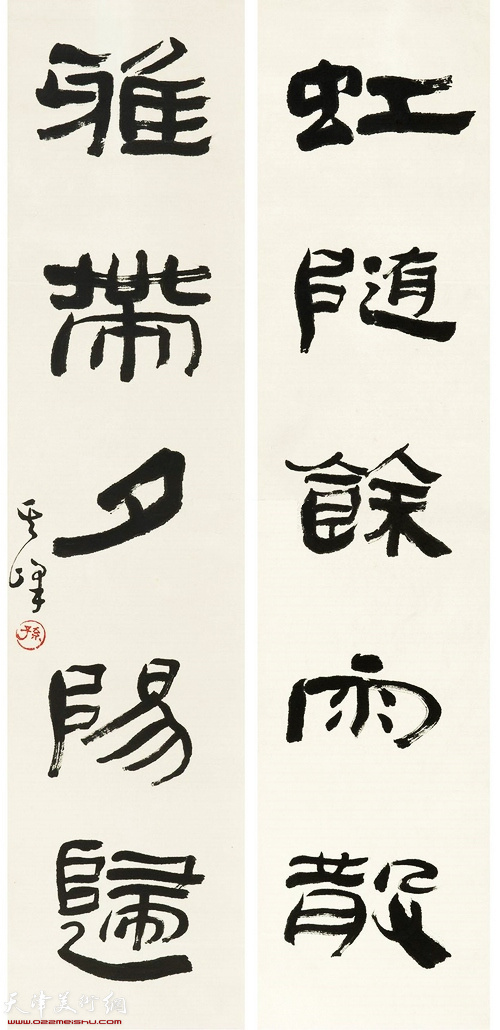 虹随餘雨散
雅帶夕陽歸
其峰
孫
天津美术网
www.022meishu.com